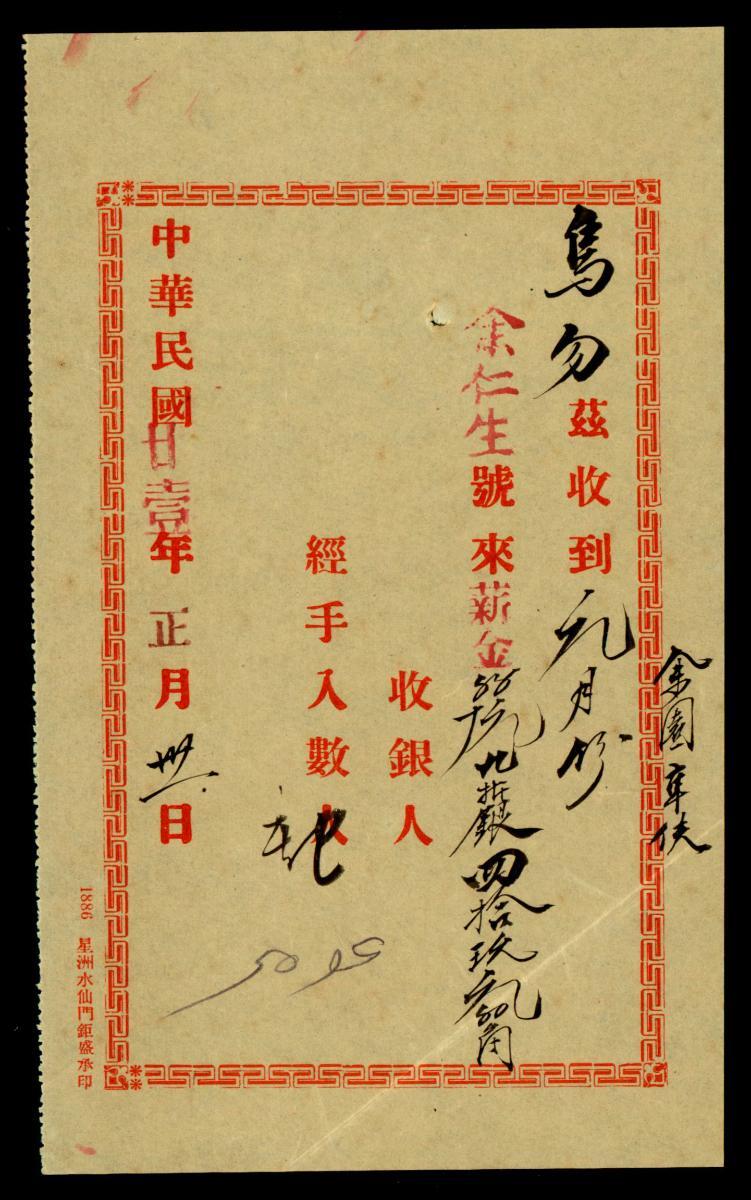 余園車伕
烏勿茲收到元月份
余仁生號來薪金〥〥十元九折銀四拾玖元〥〇角
收銀人
經手入數人
中華民國廿壹年正月卅一日
1886 星洲水仙門鉅盛承印